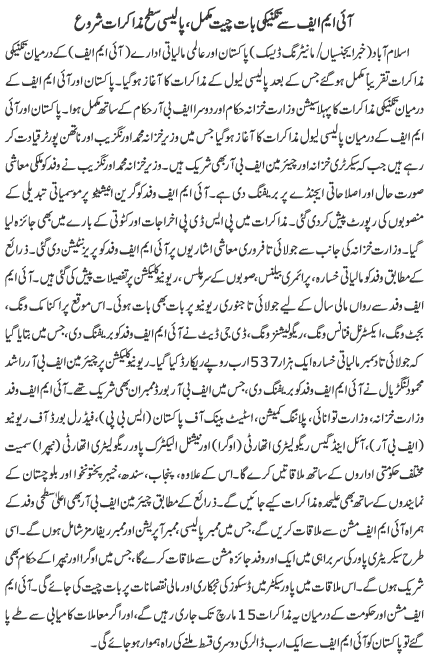 آئی ایم ایف سے تکنیکی بات چیت مکمل، پالیسی سطح مذاکرات شروع
اسلام آباد (خبر ایجنسیاں/ مانیٹرنگ ڈیسک) پاکستان اور عالمی مالیاتی ادارے (آئی ایم ایف) کے درمیان تکنیکی
مذاکرات تقریباً مکمل ہوگئے جس کے بعد پالیسی لیول کے مذاکرات کا آغاز ہوگیا۔ پاکستان اور آئی ایم ایف کے
درمیان تکنیکی مذاکرات کا پہلا سیشن وزارت خزانہ حکام اور دوسرا ایف بی آر حکام کے ساتھ مکمل ہوا۔ پاکستان اور آئی
ایم ایف کے درمیان پالیسی لیول مذاکرات کا آغاز ہوگیا جس میں وزیر خزانہ محمد اورنگزیب اور ناتھن پورٹر قیادت کر
رہے ہیں جب کہ سیکرٹری خزانہ اور چیئرمین ایف بی آر بھی شریک ہیں۔ وزیر خزانہ محمد اورنگزیب نے وفد کو ملکی معاشی
صورت حال اور اصلاحاتی ایجنڈے پر بریفنگ دی ہے۔ آئی ایم ایف وفد کو گرین انیشیٹو پر موسمیاتی تبدیلی کے
منصوبوں کی رپورٹ پیش کر دی گئی۔ مذاکرات میں پی ایس ڈی پی اخراجات اور کٹوتی کے بارے میں بھی جائزہ لیا
گیا۔ وزارت خزانہ کی جانب سے جولائی تا فروری معاشی اشاریوں پر آئی ایم ایف وفد کو پریزنٹیشن دی گئی۔ ذرائع
کے مطابق وفد کو مالیاتی خسارہ، پرائمری بیلنس، صوبوں کے سرپلس، ریونیو کلیکشن پر تفصیلات پیش کی گئی ہیں۔ آئی ایم
ایف وفد سے رواں مالی سال کے لیے جولائی تا جنوری ریونیو پر بات بھی بات ہوئی۔ اس موقع پر اکنامک ونگ،
بجٹ ونگ، ایکسٹرنل فنانس ونگ، ریگولیشنز ونگ، ڈی جی ڈیٹ نے آئی ایم ایف وفد کو بریفنگ دی، جس میں بتایا گیا
کہ جولائی تا دسمبر مالیاتی خسارہ ایک ہزار 537 ارب روپے ریکارڈ کیا گیا۔ ریونیو کلیکشن پر چیئرمین ایف بی آر راشد
محمود لنگڑیال نے آئی ایم ایف وفد کو بریفنگ دی، جس میں ایف بی آر بورڈ ممبران بھی شریک تھے۔ آئی ایم ایف وفد
وزارت خزانہ، وزارت توانائی، پلاننگ کمیشن، اسٹیٹ بینک آف پاکستان (ایس بی پی)، فیڈرل بورڈ آف ریونیو
(ایف بی آر)، آئل اینڈ گیس ریگولیٹری اتھارٹی (اوگرا) اور نیشنل الیکٹرک پاور ریگولیٹری اتھارٹی (نیپرا) سمیت
مختلف حکومتی اداروں کے ساتھ ملاقاتیں کرے گا۔ اس کے علاوہ، پنجاب، سندھ، خیبر پختونخوا اور بلوچستان کے
نمایندوں کے ساتھ بھی علیحدہ مذاکرات کیے جائیں گے۔ ذرائع کے مطابق چیئرمین ایف بی آر بھی اعلیٰ سطحی وفد کے
ہمراہ آئی ایم ایف مشن سے ملاقات کریں گے، جس میں ممبر پالیسی، ممبر آپریشن اور ممبر ریفارمز شامل ہوں گے۔ اسی
طرح سیکریٹری پاور کی سربراہی میں ایک اور وفد جائزہ مشن سے ملاقات کرے گا، جس میں اوگرا اور نیپرا کے حکام بھی
شریک ہوں گے۔ اس ملاقات میں پاور سیکٹر میں ڈسکوز کی نجکاری اور مالی نقصانات پر بات چیت کی جائے گی۔ آئی ایم
ایف مشن اور حکومت کے درمیان یہ مذاکرات 15 مارچ تک جاری رہیں گے، اور اگر معاملات کامیابی سے طے پا
گئے تو پاکستان کو آئی ایم ایف سے ایک ارب ڈالر کی دوسری قسط ملنے کی راہ ہموار ہو جائے گی۔